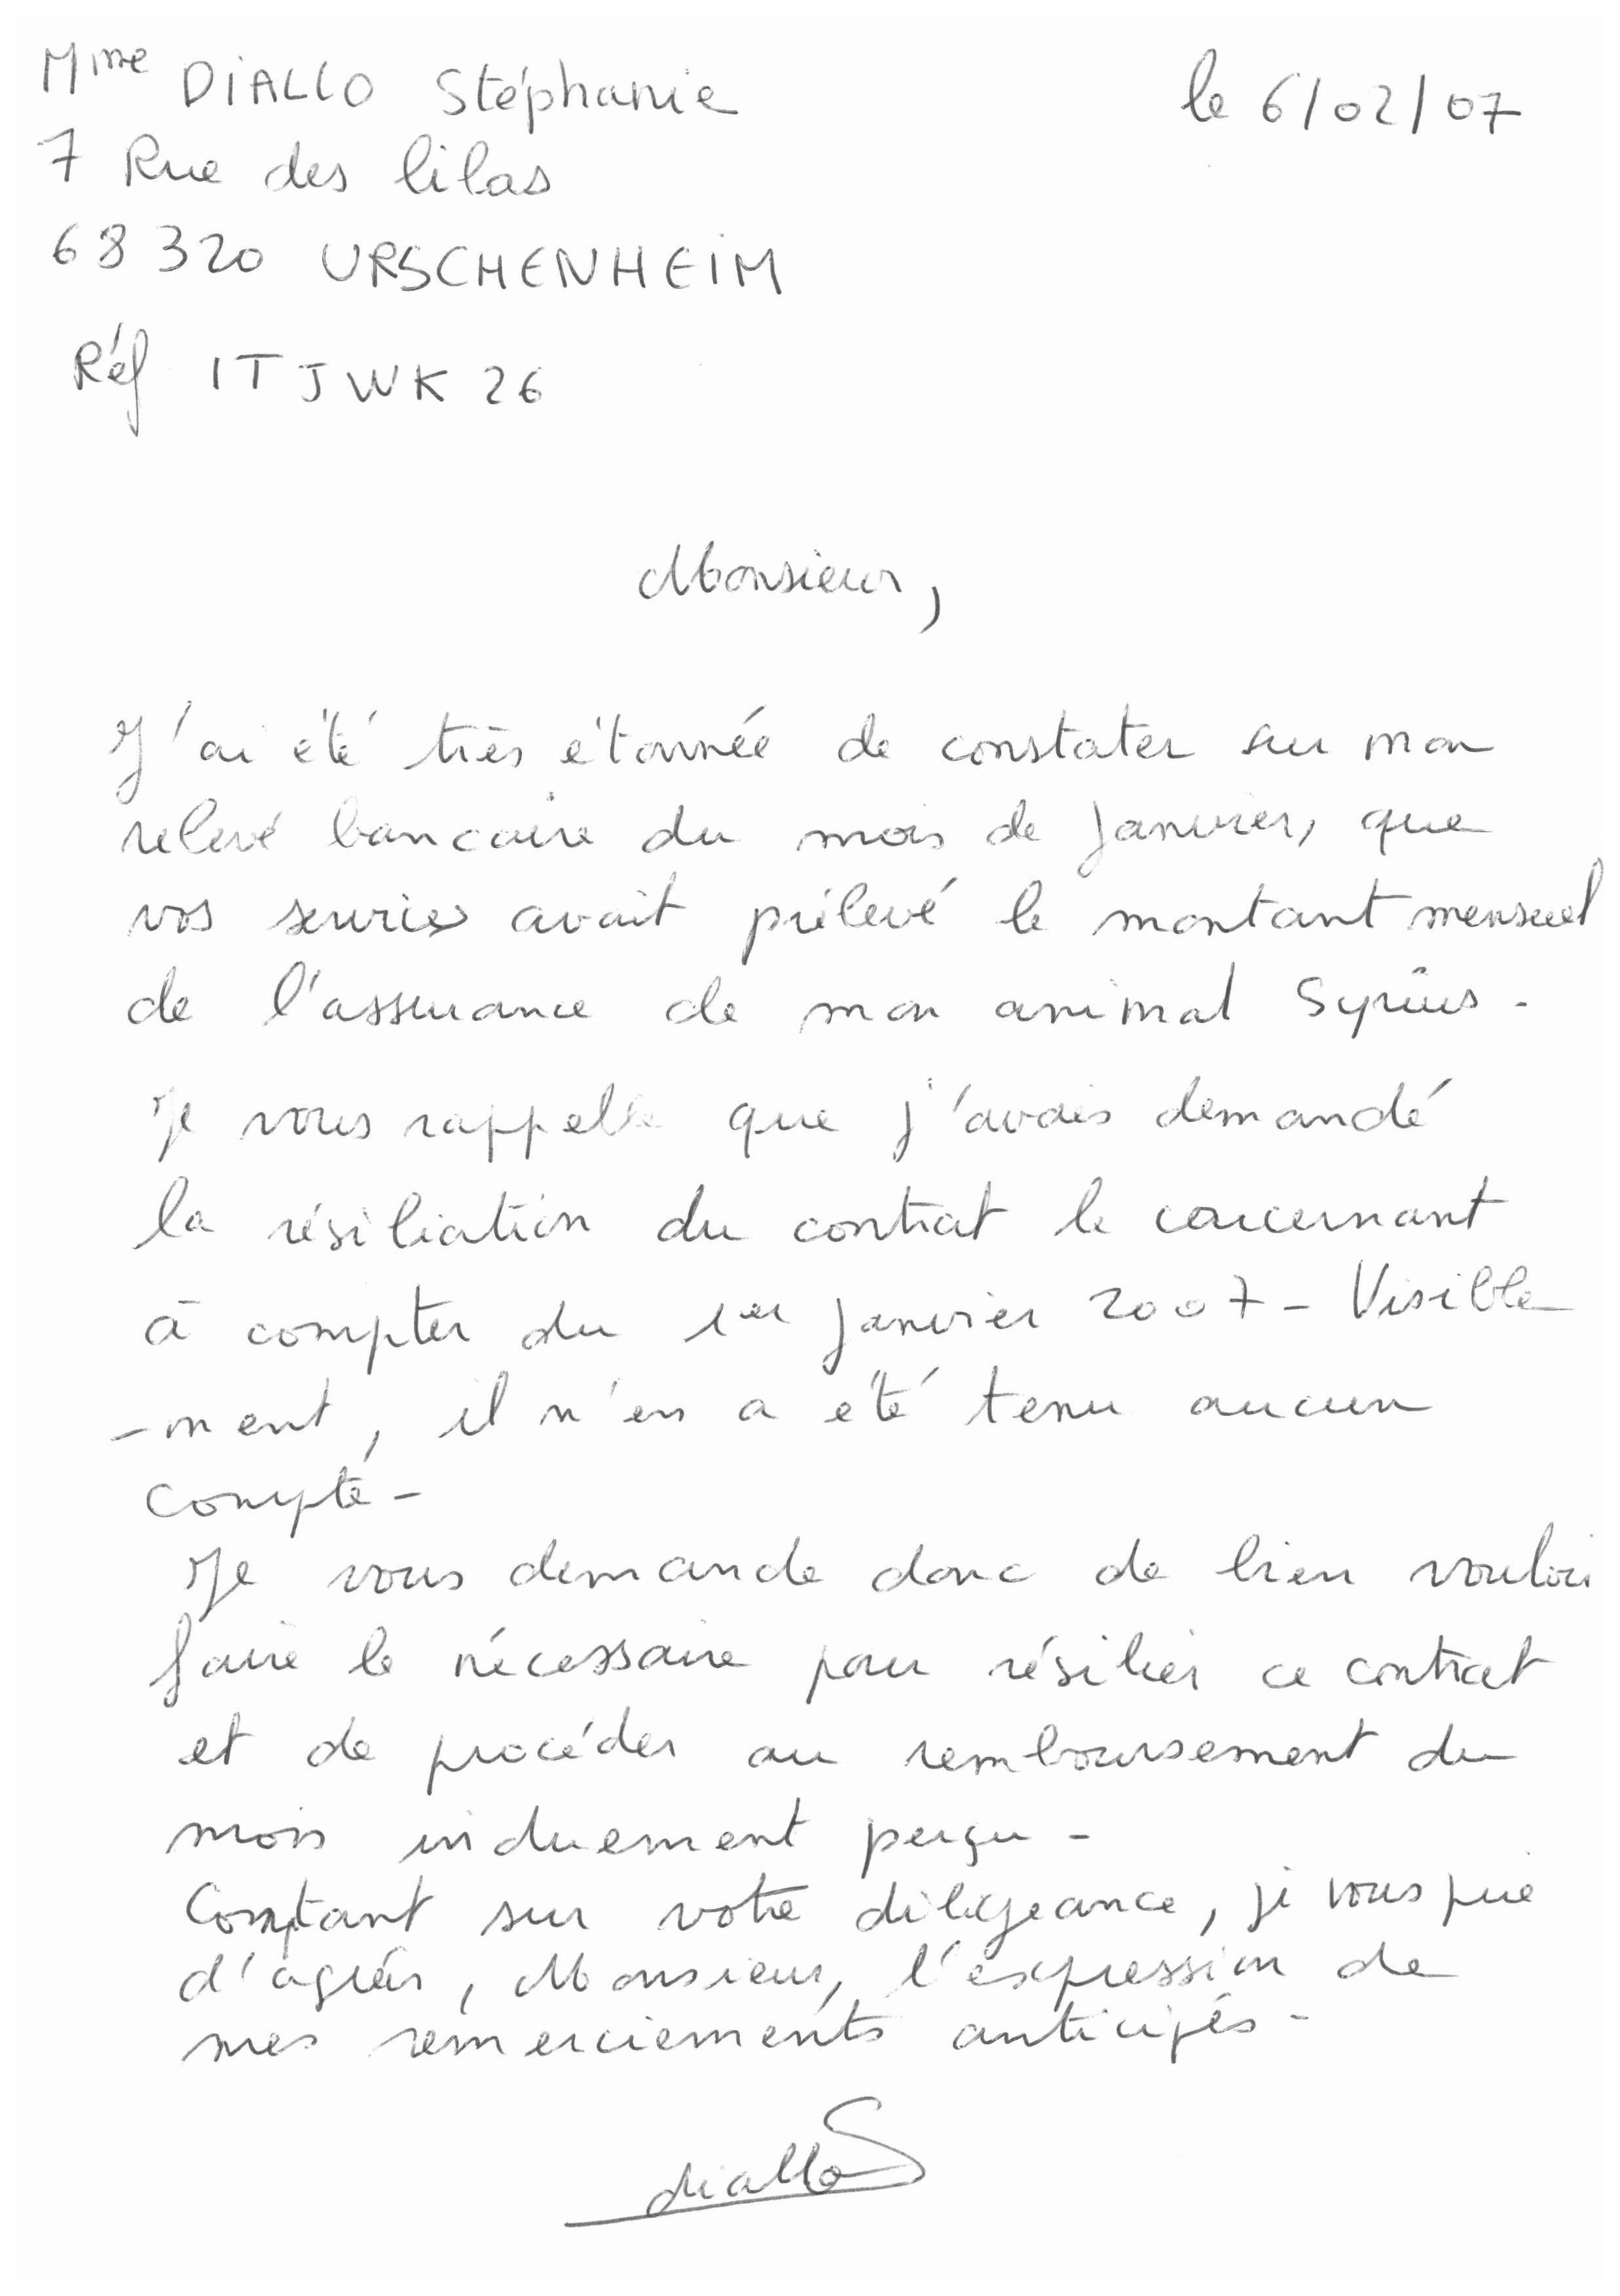 Mme DIALLO Stéphanie
le 6/02/07
7 Rue des lilas
68320 URSCHENHEIM
Réf ITJWK26
Monsieur,
J'ai été très étonnée de constater sur mon
relevé bancaire du mois de Janvier, que
vos services avait prélevé le montant mensuel
de l'assurance de mon animal Syrius.
Je vous rappelle que j'avais demandé
la résiliation du contrat le concernant
à compter du 1er Janvier 2007 - Visible
-ment, il n'en a été tenu aucun
compte -
Je vous demande donc de bien vouloir
faire le nécessaire pour résilier ce contrat
et de procéder au remboursement du
mois induement perçu -
Comptant sur votre diligeance, je vous prie
d'agréer, Monsieur, l'expression de
mes remerciements anticipés -
diallo S